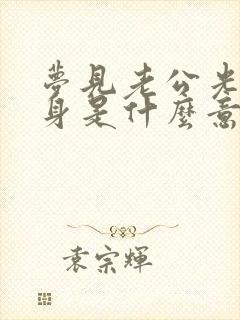 夢見老公光
身是什麼意
袁宗輝